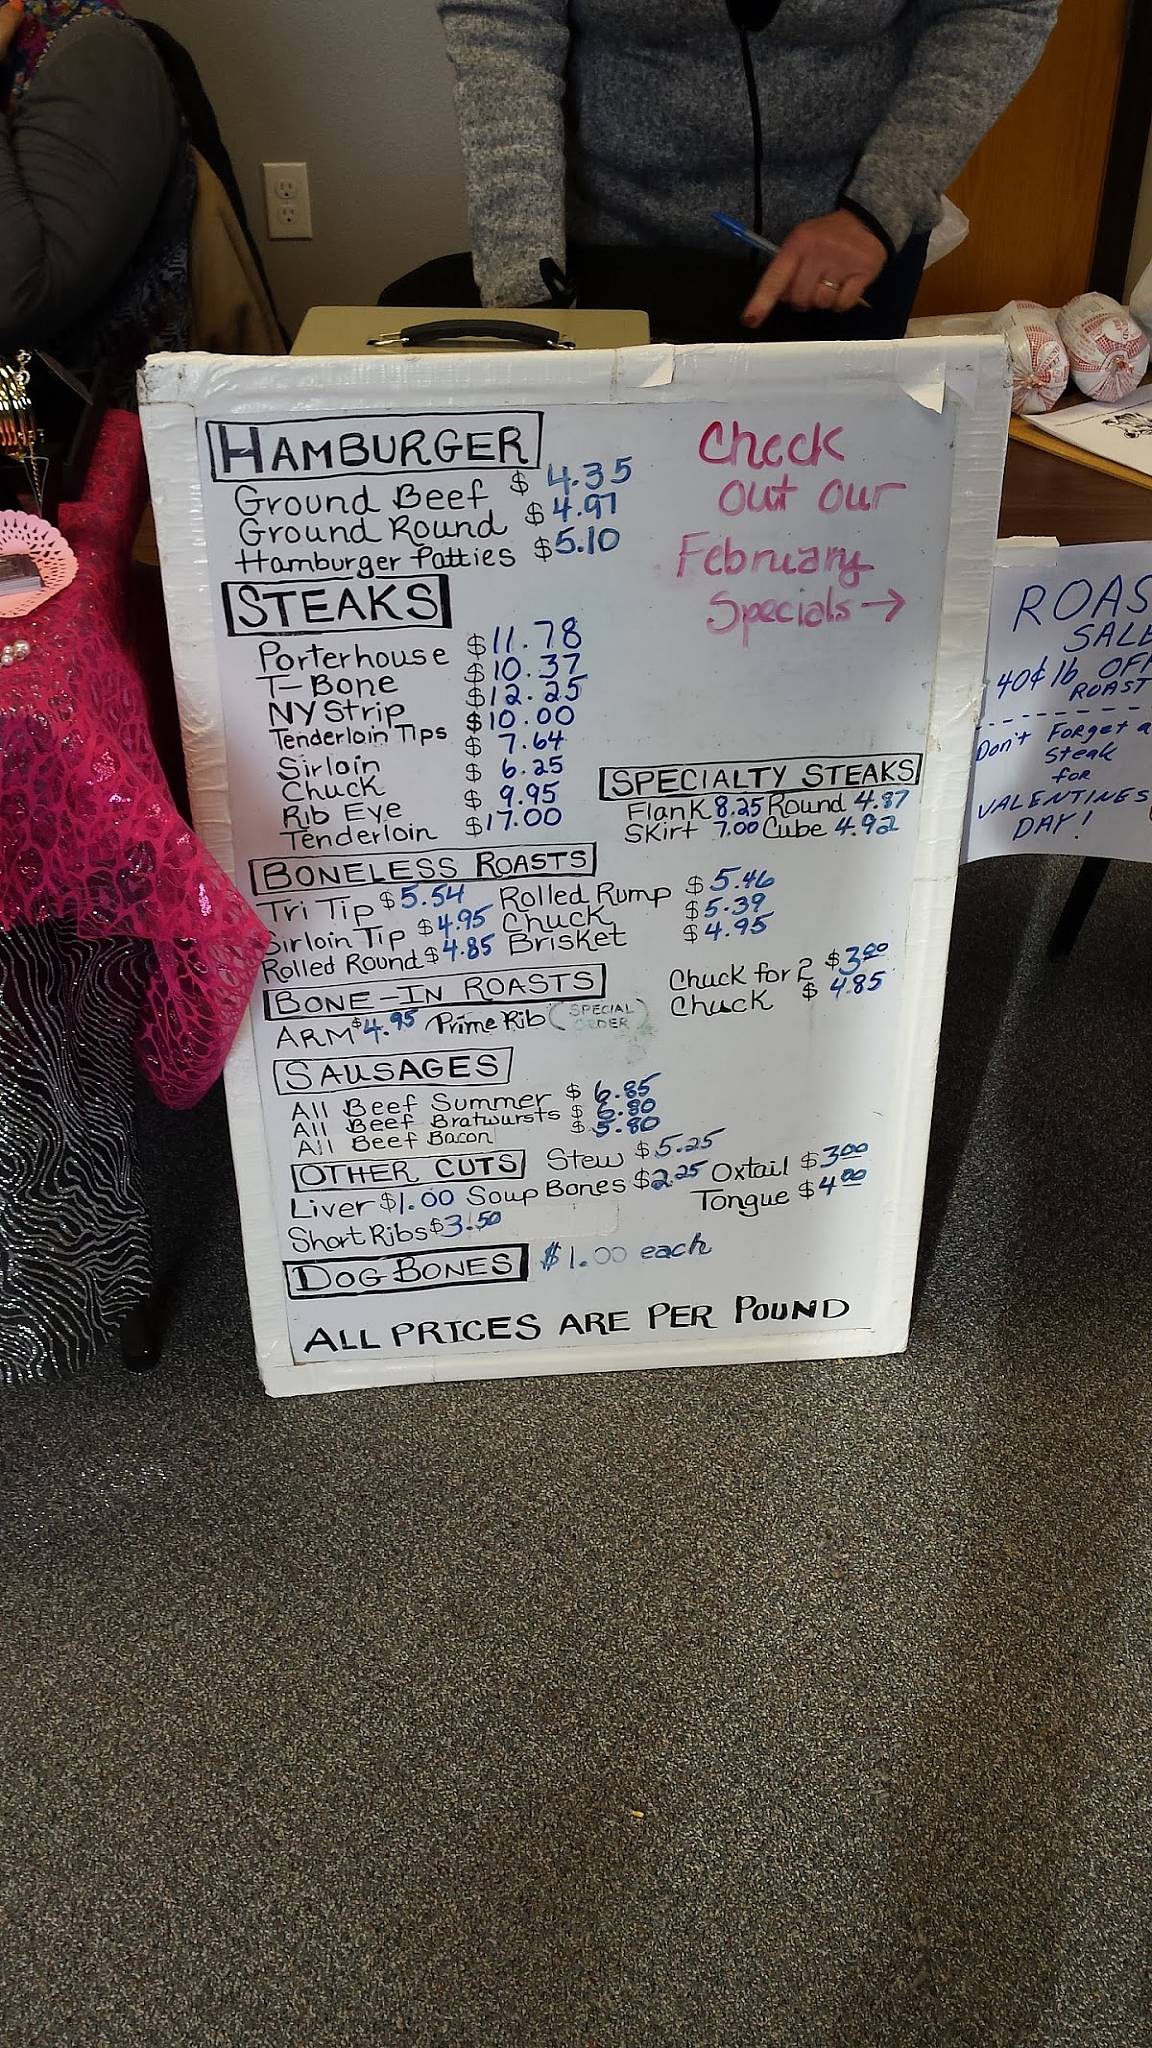 HAMBURGER
Ground Beef $ 4.35
Ground Round $ 4.97
Hamburger Patties $5.10
STEAKS
Porterhouse $11.78
T-Bone $10.37
NY Strip $12.25
Tenderloin Tips $10.00
Sirloin $ 7.64
Chuck $ 6.25
Rib Eye $ 9.95
Tenderloin $17.00
Check
out our
February
Specials →
SPECIALTY STEAKS
Flank 8.25 Round 4.87
Skirt 7.00 Cube 4.92
BONELESS ROASTS
Tri Tip $5.54 Rolled Rump $5.46
Sirloin Tip $4.95 Chuck $5.39
Rolled Round $4.85 Brisket $4.95
BONE-IN ROASTS
ARM $4.95 Prime Rib (SPECIAL ORDER)
Chuck for 2 $3.00
Chuck $ 4.85
SAUSAGES
All Beef Summer $ 6.85
All Beef Bratwursts $ 6.80
All Beef Bacon $ 5.80
OTHER CUTS Stew $5.25
Liver $1.00 Soup Bones $2.25 Oxtail $3.00
Short Ribs $3.50 Tongue $4.00
DOG BONES $1.00 each
ALL PRICES ARE PER POUND
SALE
40¢ lb OFF
ROAST
Don't Forget a
Steak
for
VALENTINES
DAY!